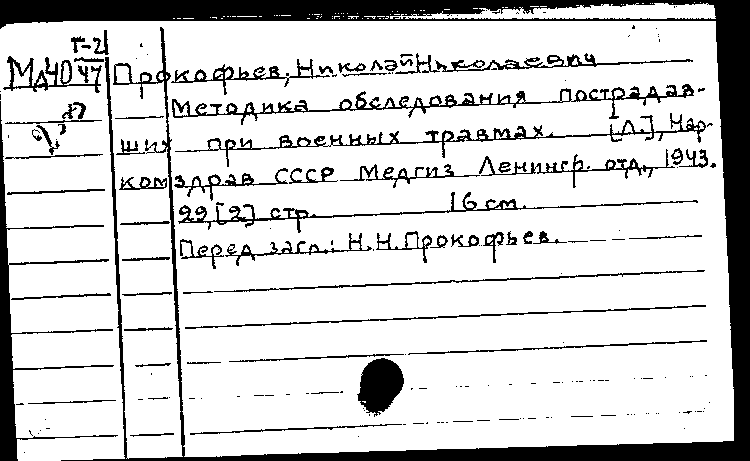 Г-2
Мд40/47 Прокофьев, Николай Николаевич
Методика обследования пострадав-
ших при военных травмах. [Л.], Нар-
комздрав СССР Медгиз Ленингр. отд., 1943.
29,[2] стр. 16 см.
Перед загл.: Н.Н.Прокофьев.